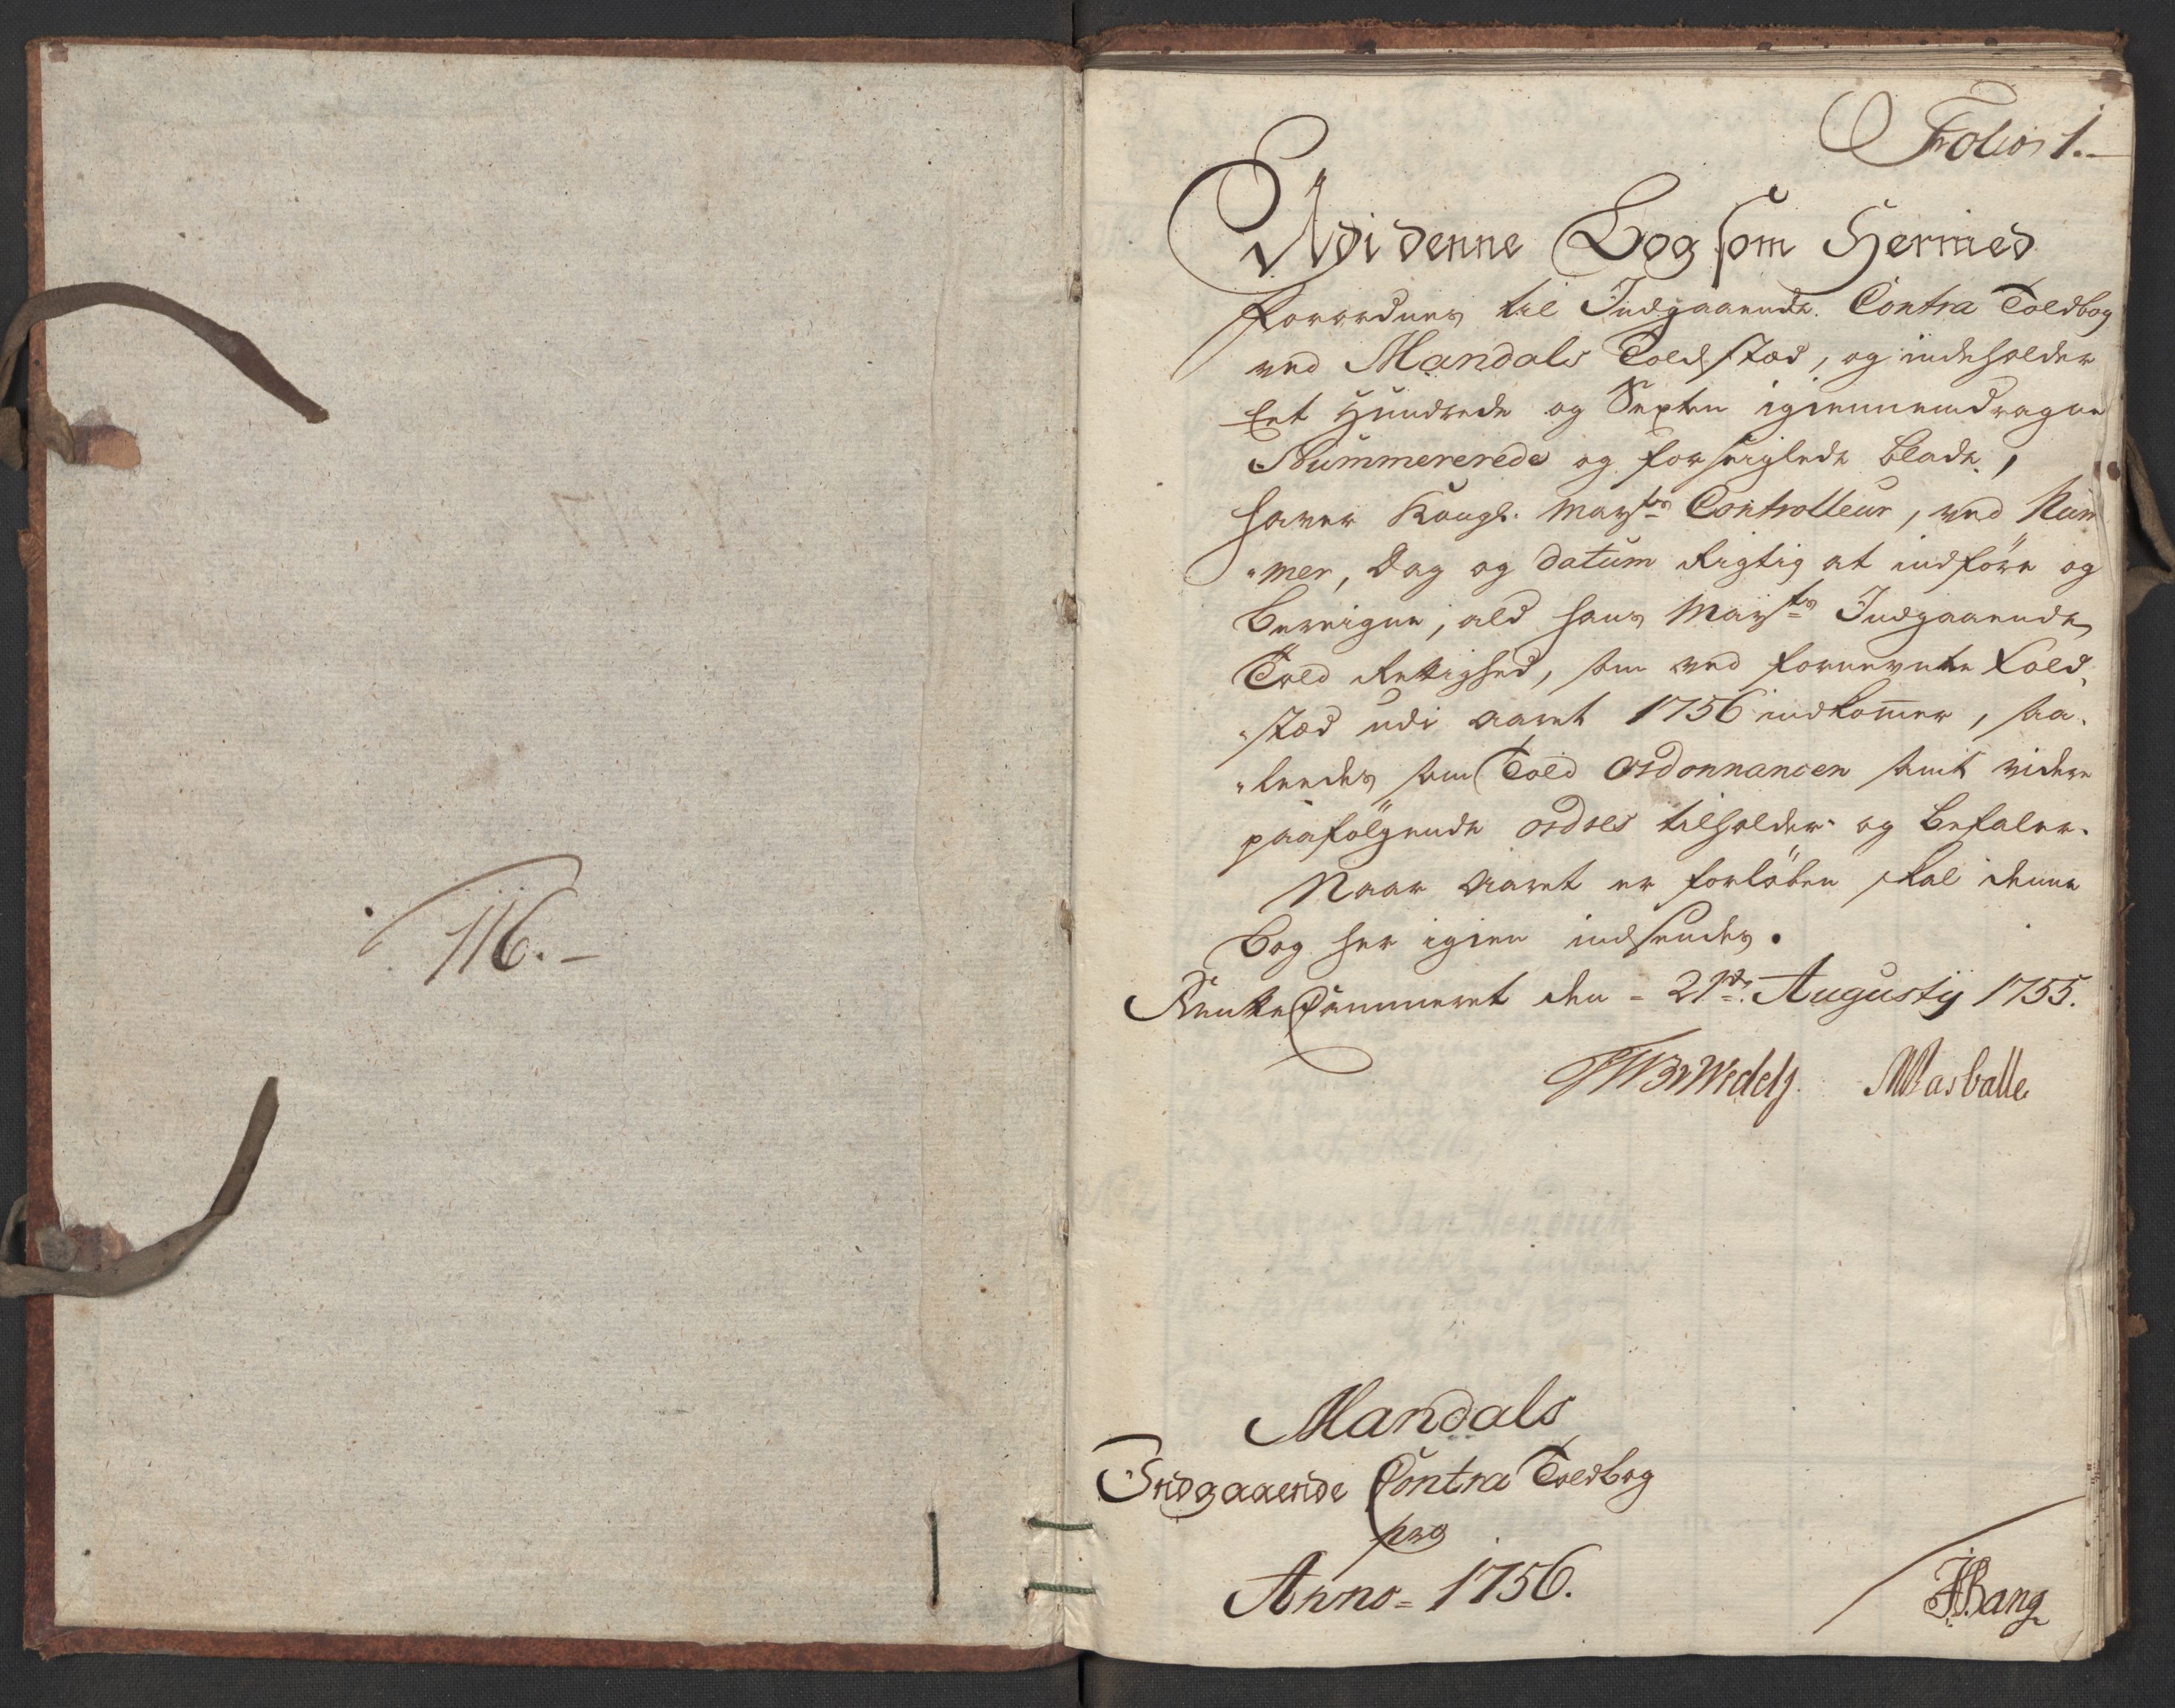 116.-
Folio 1.-
Udi denne Bog som Hermed
forordnes til Indgaaende Contra Toldbog
ved Mandals Toldstæd, og indeholder
Eet Hundrede og Sexten igiennemdragne
Nummererede og forseiglede blade,
haver Kongl. Mayts Controlleur, ved Num
mer, Dag og datum Rigtig at indføre og
Beregne, ald hans Mayts Indgaaende
Told Rettighed, som ved fornevnte Told,
stæd udi aaret 1756 indkommer, saa,
leedes som Told Ordonnancen samt videre
paafølgende ordres tilholder og befaler.
Naar Aaret er forløben skal denne
Bog her igien indsendes.
RenteCammeret den = 21de Augustij 1755.
Mandals
Indgaaende Contra Toldbog
pro
Anno = 1756.
Bang